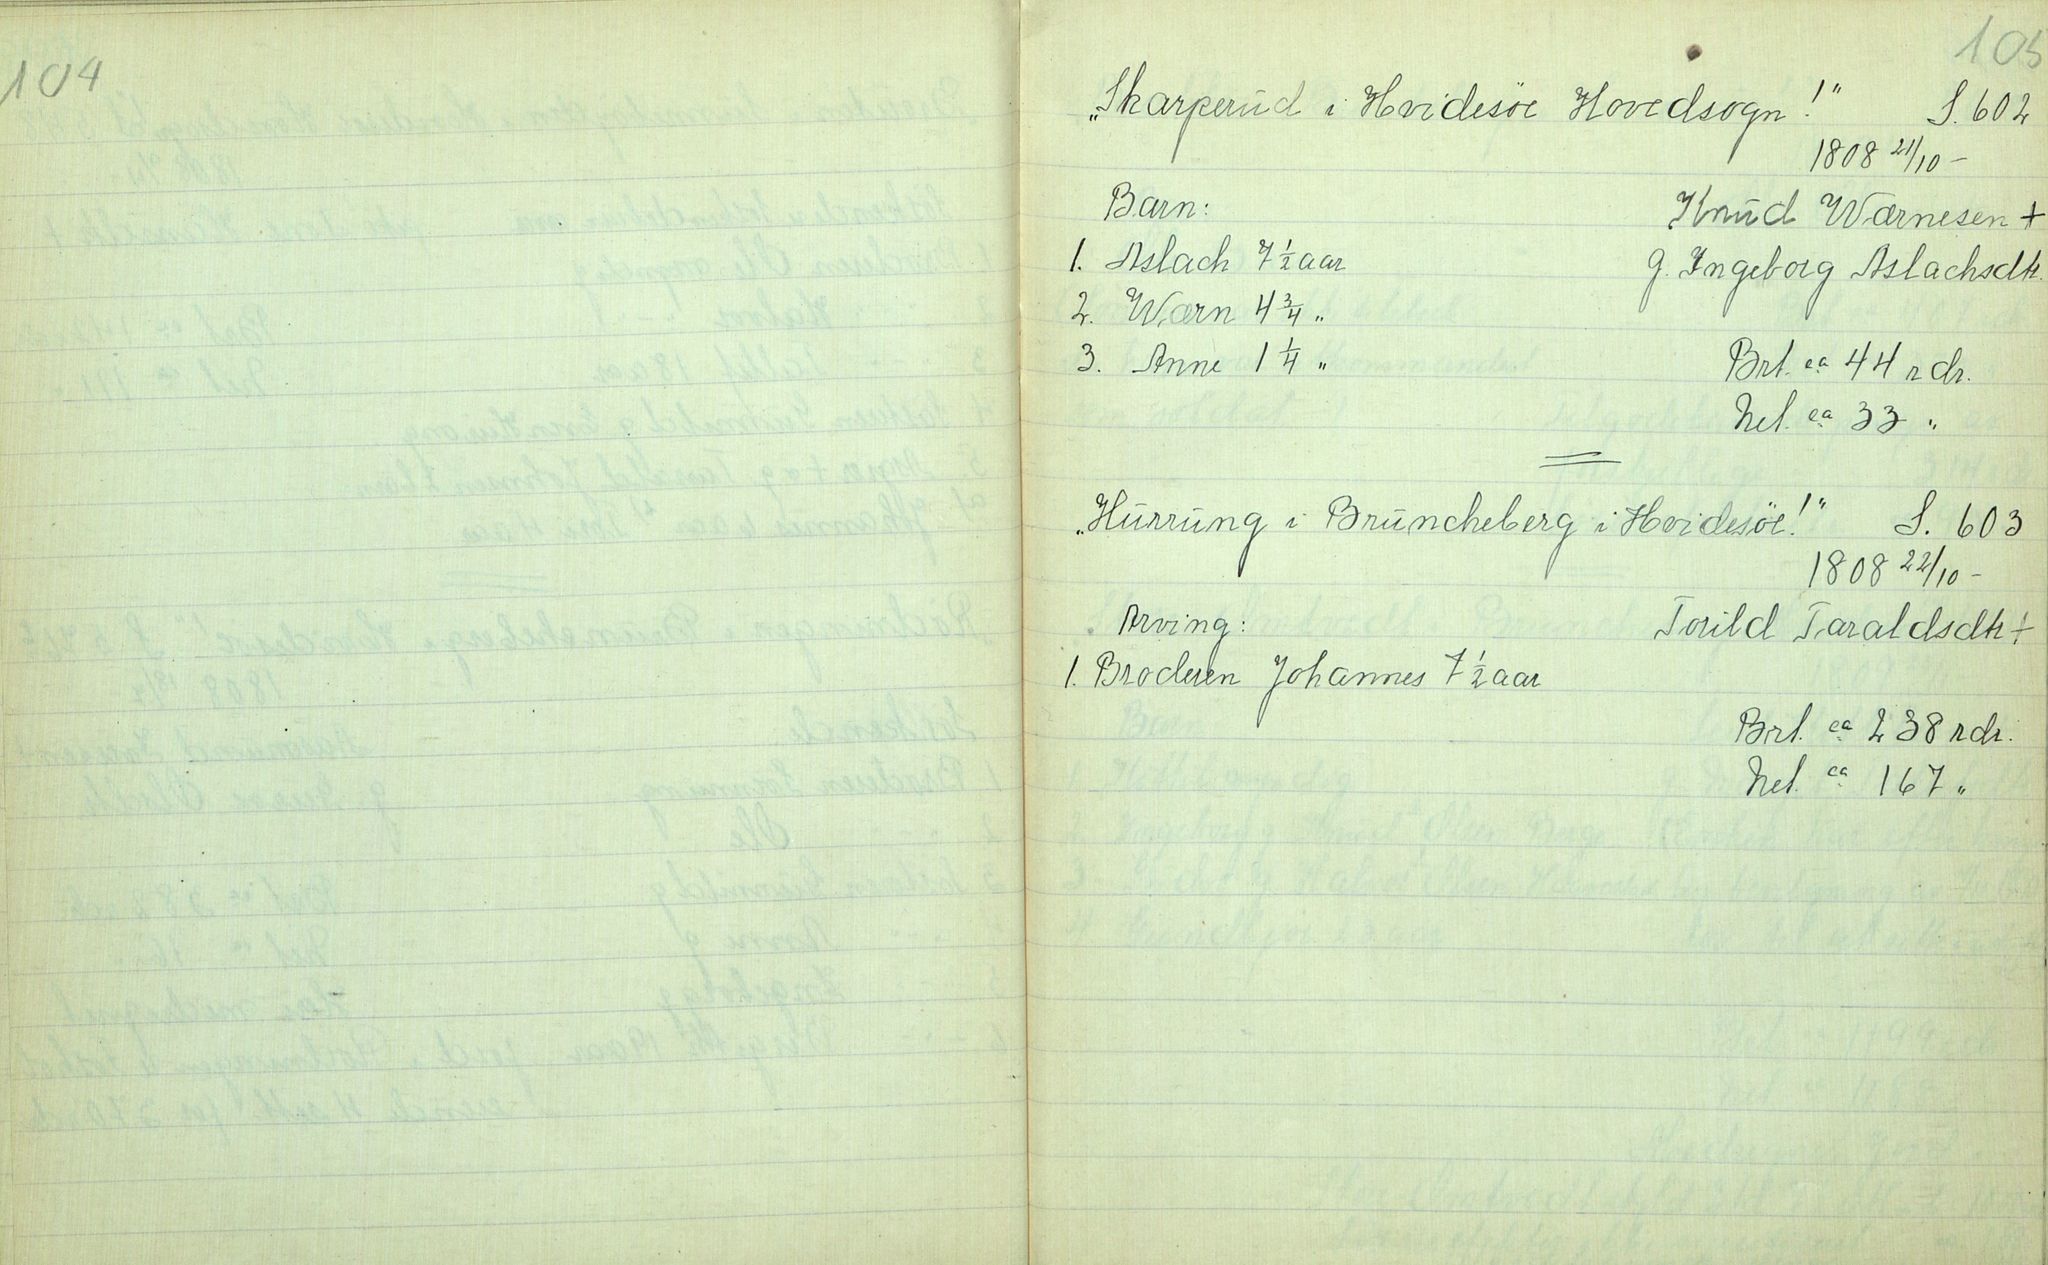 104
105
„Skarperud i Hvidesöe Hovedsogn!" S. 602
1808 21/10 -
Barn: Knud Wærnesen +
1. Aslach 7 1/2 aar g. Ingeborg Aslachsdtr.
2. Wærn 4 3/4 "
3. Anne 1 1/4 " Brt. ca 44 rdr.
Net. ca 33 "
„Hurrung i Bruncheberg i Hvidesöe!" S. 603
1808 22/10 -
Arving: Torild Taraldsdtr +
1. Broderen Johannes 7 1/2 aar
Brt. ca 238 rdr.
Net. ca 167 "